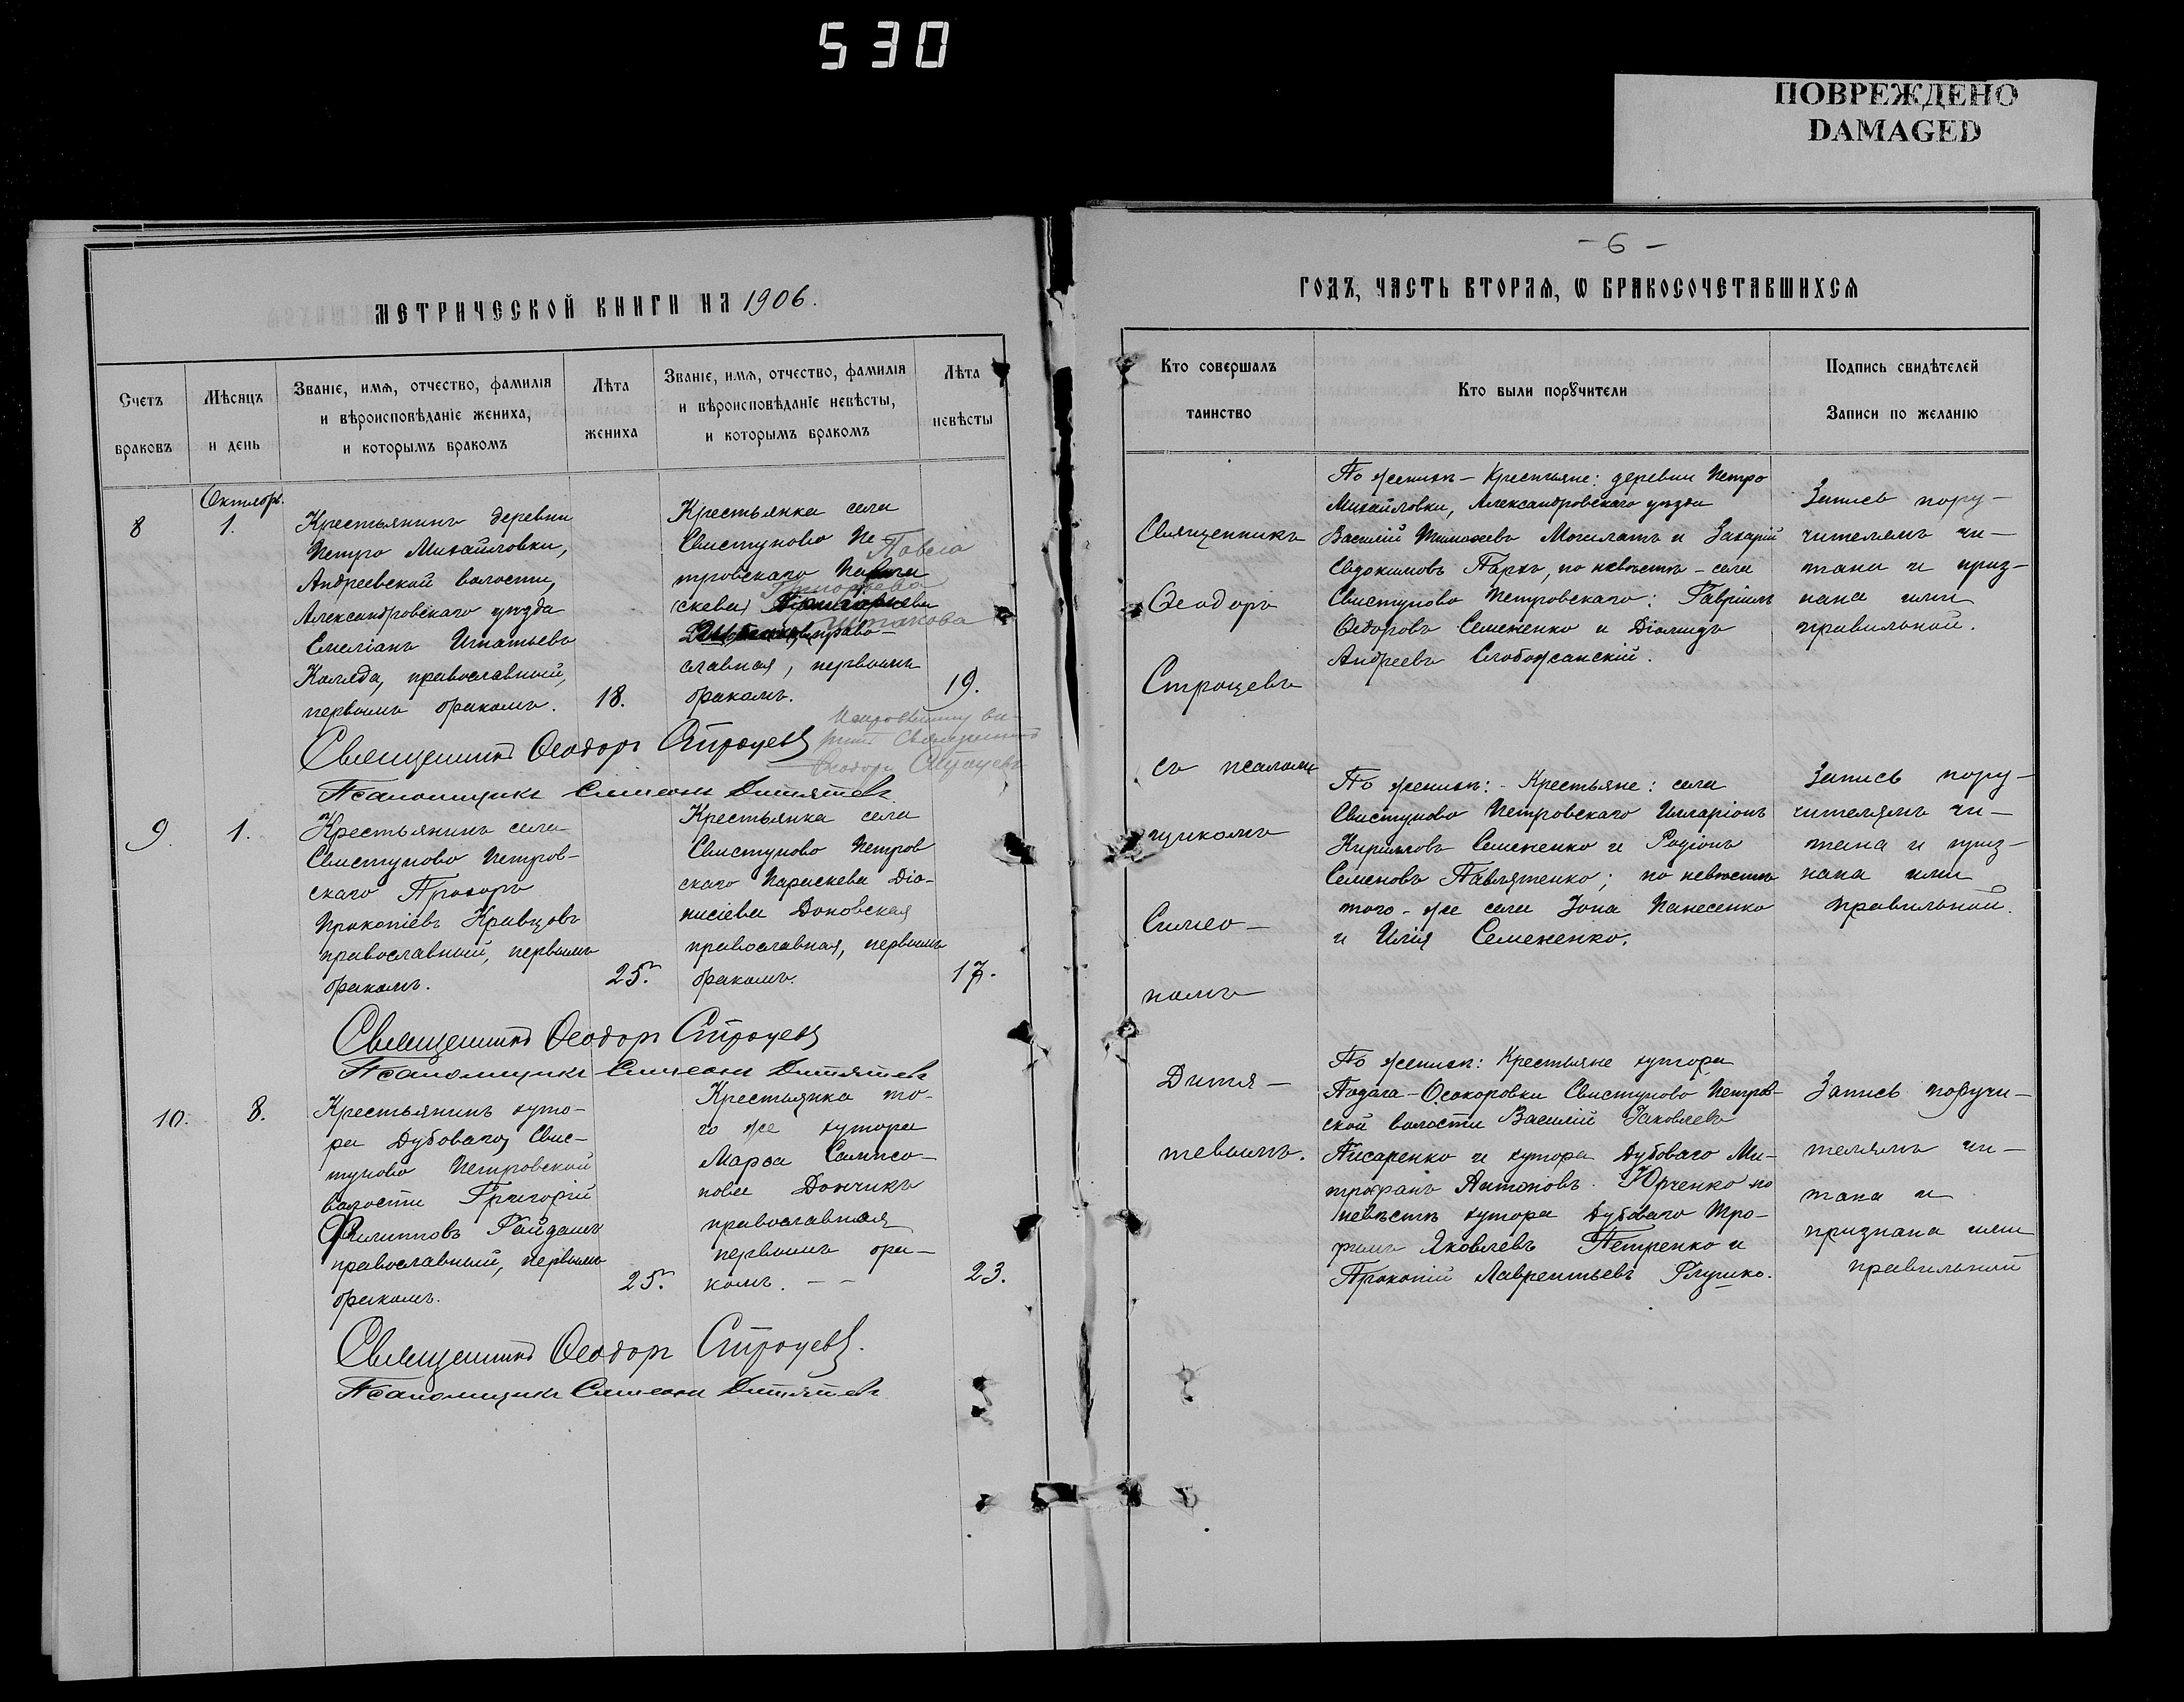 530
ПОВРЕЖДЕНО
DAMAGED
МЕТРИЧЕСКОЙ КНИГИ НА 1906.
Счетъ браковъ
Мѣсяцъ и день
Званіе, имѧ, отчество, фамиліѧ
и вѣроисповѣданіе жениха,
и которымъ бракомъ
Лѣта жениха
Званіе, имѧ, отчество, фамиліѧ
и вѣроисповѣданіе невѣсты,
и которымъ бракомъ
Лѣта невѣсты
8
Октябрь.
1.
Крестьянинъ деревни
Петро Михайловки,
Андреевской волости,
Александровскаго уѣзда
Емеліанъ Игнатьевъ
Коляда, православный,
первымъ бракомъ.
18.
Крестьянка села
Свистуново Пе-
тровскаго
Павла
Григорьева
право-
славная, первымъ
бракомъ.
19.
Священникъ Ѳеодоръ Строцевъ
Псаломщикъ Симеонъ Дитятевъ
9.
1.
Крестьянинъ села
Свистуново Петров-
скаго Прохоръ
Прокопіевъ Кравцовъ
православный, первымъ
бракомъ.
25.
Крестьянка села
Свистуново Петров
скаго Параскева Діо-
нисіева Доновская
православная, первымъ
бракомъ.
17.
Священникъ Ѳеодоръ Строцевъ
Псаломщикъ Симеонъ Дитятевъ
10.
8.
Крестьянинъ хуто-
ра Дубоваго, Свис-
туново Петровской
волости Григорій
Филипповъ Гайдашъ
православный, первымъ
бракомъ.
25.
Крестьянка то-
го же хутора
Марѳа Сампсо-
нова Дончикъ
православная
первымъ бра-
комъ. - -
23.
Священникъ Ѳеодоръ Строцевъ.
Псаломщикъ Симеонъ Дитятевъ
- 6 -
ГОДЪ, ЧАСТЬ ВТОРАѦ, Ѡ БРАКОСОЧЕТАВШИХСѦ
Кто совершалъ таинство
Кто были порꙋчители
Подпись свидѣтелей
Записи по желанію
Священникъ
Ѳеодоръ
Строцевъ
съ псалом
щикомъ
Симео-
номъ
Дитя-
тевымъ.
По женихѣ - Крестьяне: деревни Петро
Михайловки, Александровскаго уѣзда
Василій Тимоѳеевъ Могилатъ и Захарій
Евдокимовъ Паркъ, по невѣстѣ - села
Свистуново Петровскаго: Гавріилъ
Ѳедоровъ Семененко и Діомидъ
Андреевъ Слобожанскій.
Запись пору-
чителямъ чи-
тана и приз-
нана ими
правильной.
По женихѣ: - Крестьяне: села
Свистуново Петровскаго Илларіонъ
Кирилловъ Семененко и Родіонъ
Семеновъ Павлятенко; по невѣстѣ
того-же села Іона Панесенко
и Илія Семененко.
Запись пору-
чителямъ чи-
тана и приз-
нана ими
правильной.
По женихѣ: Крестьяне хутора
Подога-Осокоровки Свистуново Петров-
ской волости Василій Іаковлевъ
Писаренко и хутора Дубоваго Ми-
трофанъ Антоновъ Юрченко по
невѣстѣ хутора Дубоваго Тро-
фимъ Яковлевъ Петренко и
Прокопій Лаврентьевъ Глушко.
Запись поручи-
телямъ чи-
тана и
признана ими
правильной